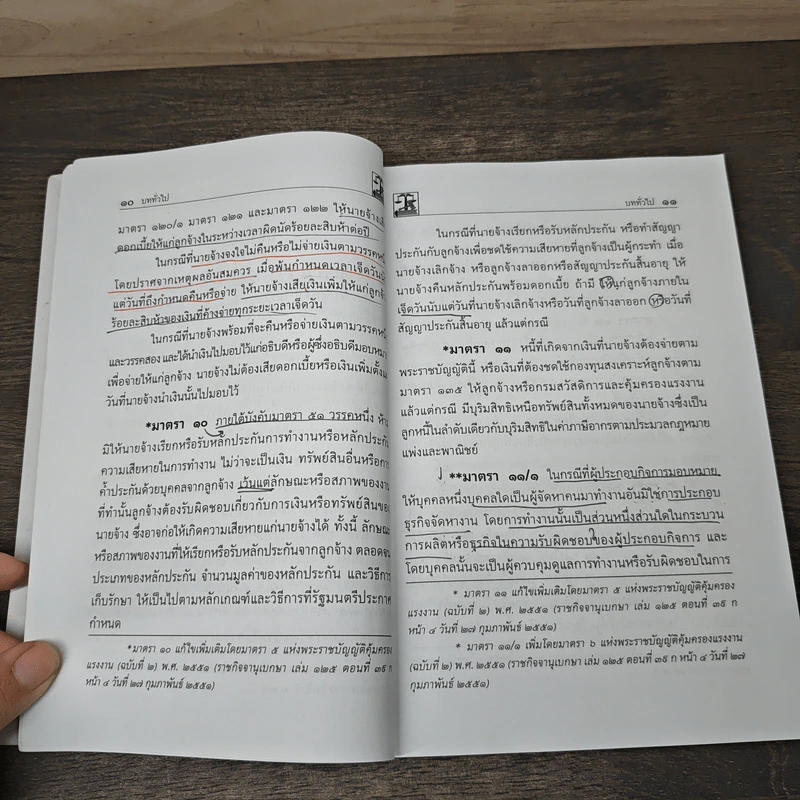 ๑๐ บททั่วไป
มาตรา ๑๒๐/๑ มาตรา ๑๒๑ และมาตรา ๑๒๒ ให้นายจ้าง
ดอกเบี้ยให้แก่ลูกจ้างในระหว่างเวลาผิดนัดร้อยละสิบห้าต่อปี
ในกรณีที่นายจ้างจงใจไม่คืนหรือไม่จ่ายเงินตามวรรคหนึ่ง
โดยปราศจากเหตุผลอันสมควร เมื่อพ้นกำหนดเวลาเจ็ดวัน
แต่วันที่ถึงกำหนดคืนหรือจ่าย ให้นายจ้างเสียเงินเพิ่มให้แก่ลูกจ้าง
ร้อยละสิบห้าของเงินที่ค้างจ่ายทุกระยะเวลาเจ็ดวัน
ในกรณีที่นายจ้างพร้อมที่จะคืนหรือจ่ายเงินตามวรรคหนึ่ง
และวรรคสอง และได้นำเงินไปมอบไว้แก่อธิบดีหรือผู้ซึ่งอธิบดีมอบหมาย
เพื่อจ่ายให้แก่ลูกจ้าง นายจ้างไม่ต้องเสียดอกเบี้ยหรือเงินเพิ่มตั้งแต่
วันที่นายจ้างนำเงินนั้นไปมอบไว้
*มาตรา ๑๐ ภายใต้บังคับมาตรา ๕๑ วรรคหนึ่ง ห้าม
มิให้นายจ้างเรียกหรือรับหลักประกันการทำงานหรือหลักประกัน
ความเสียหายในการทำงาน ไม่ว่าจะเป็นเงิน ทรัพย์สินอื่นหรือการ
ค้ำประกันด้วยบุคคลจากลูกจ้าง เว้นแต่ลักษณะหรือสภาพของงาน
ที่ทำนั้นลูกจ้างต้องรับผิดชอบเกี่ยวกับการเงินหรือทรัพย์สินของ
นายจ้าง ซึ่งอาจก่อให้เกิดความเสียหายแก่นายจ้างได้ ทั้งนี้ ลักษณะ
หรือสภาพของงานที่ให้เรียกหรือรับหลักประกันจากลูกจ้าง ตลอดจน
ประเภทของหลักประกัน จำนวนมูลค่าของหลักประกัน และวิธีการ
เก็บรักษา ให้เป็นไปตามหลักเกณฑ์และวิธีการที่รัฐมนตรีประกาศ
กำหนด
*มาตรา ๑๐ แก้ไขเพิ่มเติมโดยมาตรา ๕ แห่งพระราชบัญญัติคุ้มครอง
แรงงาน (ฉบับที่ ๒) พ.ศ. ๒๕๕๑ (ราชกิจจานุเบกษา เล่ม ๑๒๕ ตอนที่ ๓๙ ก
หน้า ๔ วันที่ ๒๗ กุมภาพันธ์ ๒๕๕๑)
บททั่วไป ๑๑
ในกรณีที่นายจ้างเรียกหรือรับหลักประกัน หรือทำสัญญา
ประกันกับลูกจ้างเพื่อชดใช้ความเสียหายที่ลูกจ้างเป็นผู้กระทำ เมื่อ
นายจ้างเลิกจ้าง หรือลูกจ้างลาออกหรือสัญญาประกันสิ้นอายุ ให้
นายจ้างคืนหลักประกันพร้อมดอกเบี้ย ถ้ามี ให้แก่ลูกจ้างภายใน
เจ็ดวันนับแต่วันที่นายจ้างเลิกจ้างหรือวันที่ลูกจ้างลาออก หรือวันที่
สัญญาประกันสิ้นอายุ แล้วแต่กรณี
*มาตรา ๑๑ หนี้ที่เกิดจากเงินที่นายจ้างต้องจ่ายตาม
พระราชบัญญัตินี้ หรือเงินที่ต้องชดใช้กองทุนสงเคราะห์ลูกจ้างตาม
มาตรา ๑๓๕ ให้ลูกจ้างหรือกรมสวัสดิการและคุ้มครองแรงงาน
แล้วแต่กรณี มีบุริมสิทธิเหนือทรัพย์สินทั้งหมดของนายจ้างซึ่งเป็น
ลูกหนี้ในลำดับเดียวกับบุริมสิทธิในค่าภาษีอากรตามประมวลกฎหมาย
แพ่งและพาณิชย์
**มาตรา ๑๑/๑ ในกรณีที่ผู้ประกอบกิจการมอบหมาย
ให้บุคคลหนึ่งบุคคลใดเป็นผู้จัดหาคนมาทำงานอันมิใช่การประกอบ
ธุรกิจจัดหางาน โดยการทำงานนั้นเป็นส่วนหนึ่งส่วนใดในกระบวน
การผลิตหรือธุรกิจในความรับผิดชอบของผู้ประกอบกิจการ และ
โดยบุคคลนั้นจะเป็นผู้ควบคุมดูแลการทำงานหรือรับผิดชอบในการ
* มาตรา ๑๑ แก้ไขเพิ่มเติมโดยมาตรา ๕ แห่งพระราชบัญญัติคุ้มครอง
แรงงาน (ฉบับที่ ๒) พ.ศ. ๒๕๕๑ (ราชกิจจานุเบกษา เล่ม ๑๒๕ ตอนที่ ๓๙ ก
หน้า ๔ วันที่ ๒๗ กุมภาพันธ์ ๒๕๕๑)
* มาตรา ๑๑/๑ เพิ่มโดยมาตรา ๖ แห่งพระราชบัญญัติคุ้มครองแรงงาน
(ฉบับที่ ๒) พ.ศ. ๒๕๕๑ (ราชกิจจานุเบกษา เล่ม ๑๒๕ ตอนที่ ๓๙ ก หน้า ๔ วันที่ ๒๗
กุมภาพันธ์ ๒๕๕๑)